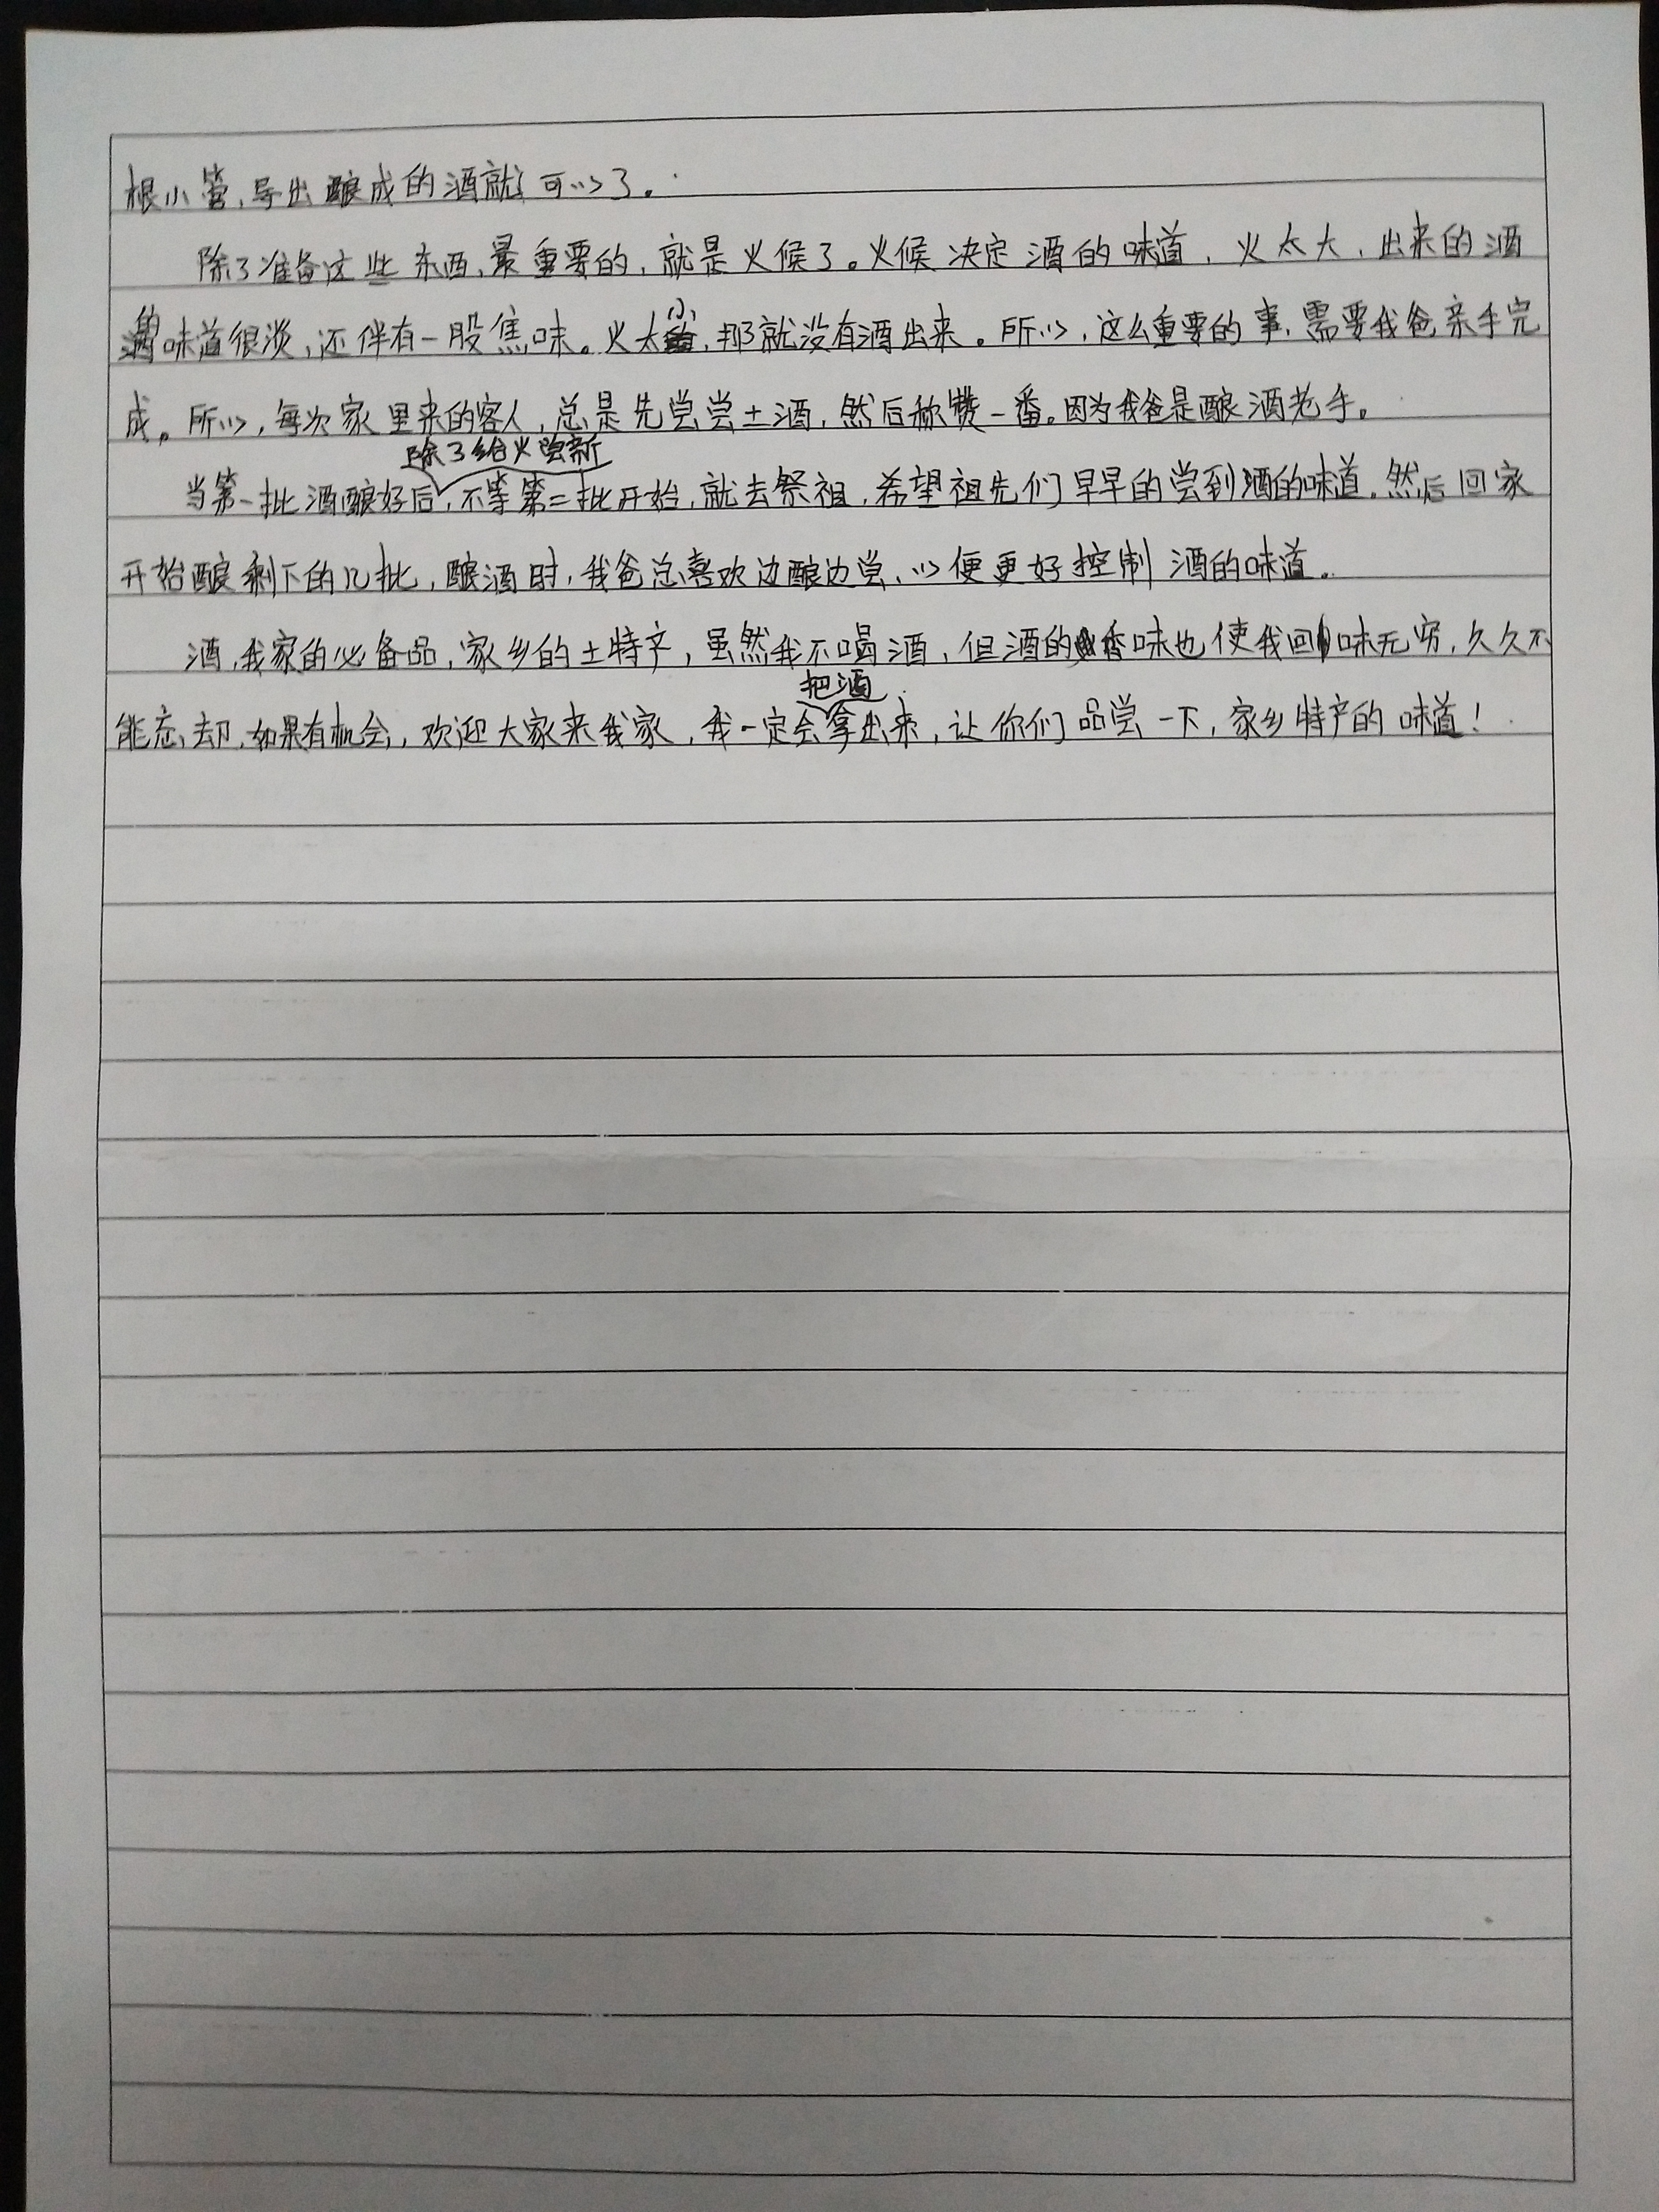 根小管,导出酿成的酒就可以了。
除了准备这些东西,最重要的,就是火候了。火候决定酒的味道,火太大,出来的酒
的味道很淡,还伴有一股焦味。火太小,那就没有酒出来。所以,这么重要的事,需要我爸亲手完
成。所以,每次家里来的客人,总是先尝尝土酒,然后称赞一番。因为我爸是酿酒老手。
除了给火
当第一批酒酿好后,不等第二批开始,就去祭祖,希望祖先们早早的尝到酒的味道。然后回家
开始酿剩下的几批,酿酒时,我爸总喜欢边酿边尝,以便更好控制酒的味道。
酒,我家的必备品,家乡的土特产,虽然我不喝酒,但酒的香味也使我回味无穷,久久不
把酒
能忘却,如果有机会,欢迎大家来我家,我一定会拿出来,让你们品尝一下,家乡特产的味道!